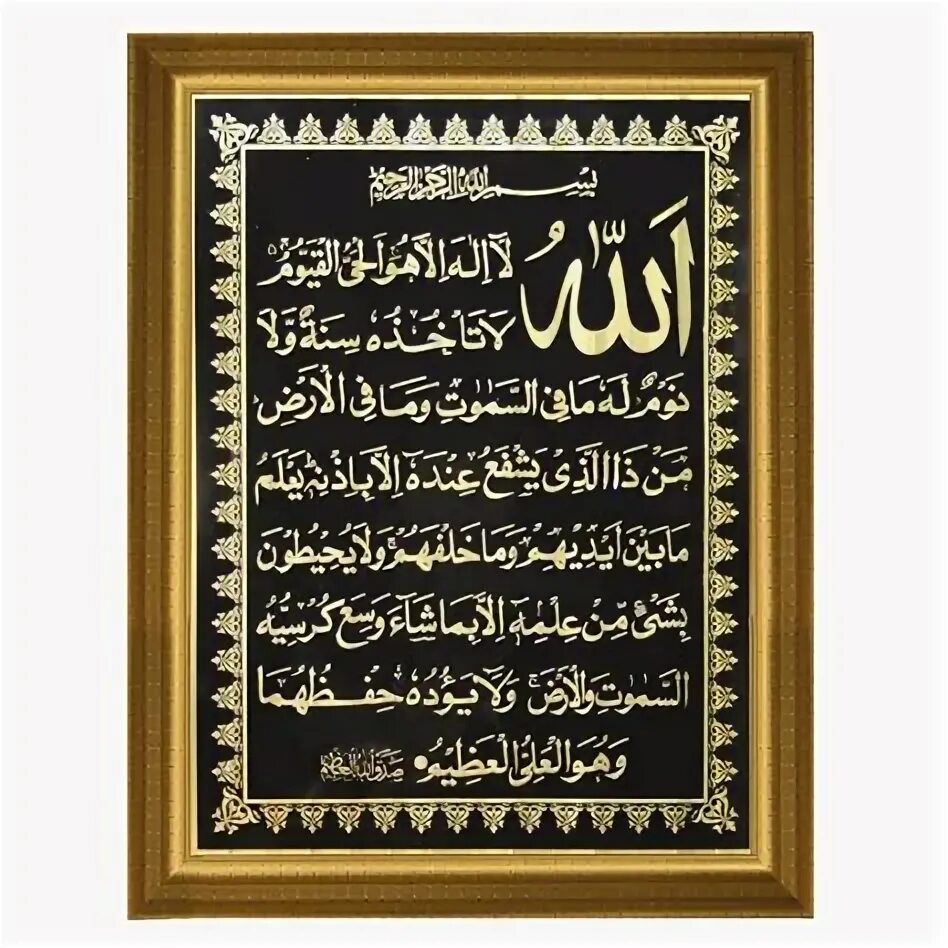 بسم الله الرحمن الرحيم
اَللّٰهُ لَآ اِلٰهَ اِلَّا هُوَ اَلْحَىُّ الْقَيُّوْمُ
لَا تَاْخُذُهٗ سِنَةٌ وَّلَا
نَوْمٌ لَهٗ مَا فِى السَّمٰوٰتِ وَمَا فِى الْاَرْضِ
مَنْ ذَا الَّذِىْ يَشْفَعُ عِنْدَهٗٓ اِلَّا بِاِذْنِهٖ يَعْلَمُ
مَا بَيْنَ اَيْدِيْهِمْ وَمَا خَلْفَهُمْ وَلَا يُحِيْطُوْنَ
بِشَىْءٍ مِّنْ عِلْمِهٖٓ اِلَّا بِمَا شَآءَ وَسِعَ كُرْسِيُّهُ
السَّمٰوٰتِ وَالْاَرْضَ وَلَا يَؤُدُهٗ حِفْظُهُمَا
وَهُوَ الْعَلِىُّ الْعَظِيْمُ صدق الله العظيم